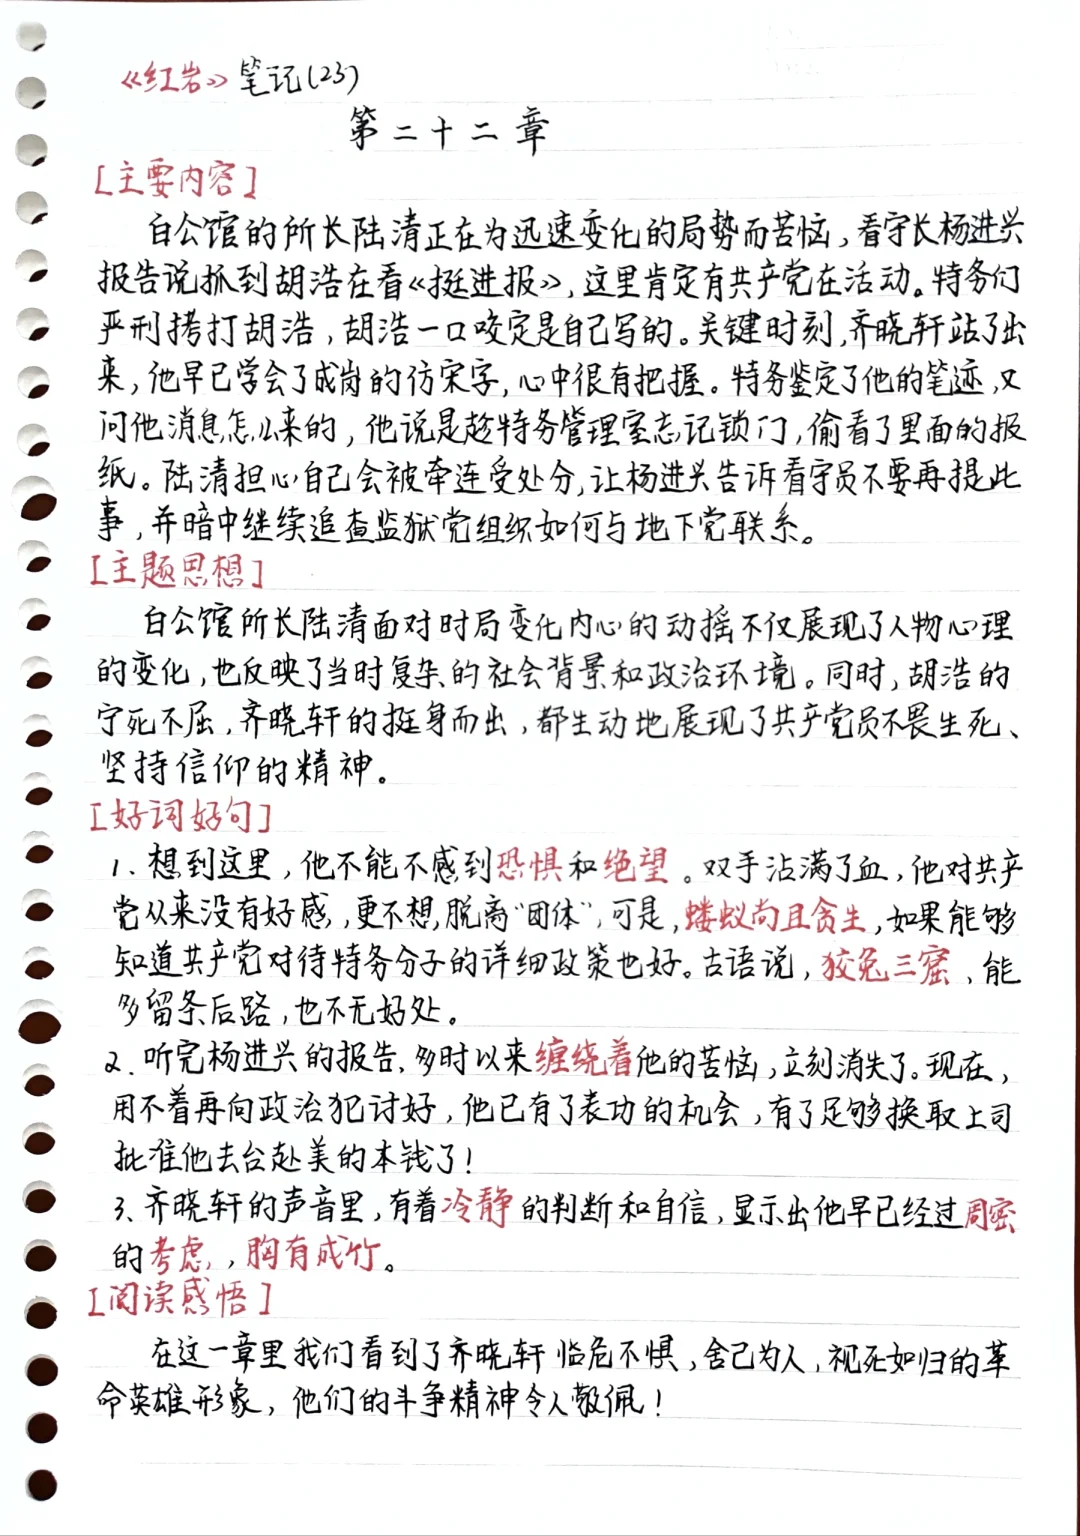 《红岩》笔记(23)
第二十二章
[主要内容]
白公馆的所长陆清正在为迅速变化的局势而苦恼,看守长杨进兴
报告说抓到胡浩在看《挺进报》,这里肯定有共产党在活动。特务们
严刑拷打胡浩,胡浩一口咬定是自己写的。关键时刻,齐晓轩站了出
来,他早已学会了成岗的仿宋字,心中很有把握。特务鉴定了他的笔迹,又
问他消息怎么来的,他说是趁特务管理室忘记锁门,偷看了里面的报
纸。陆清担心自己会被牵连受处分,让杨进兴告诉看守员不要再提此
事,并暗中继续追查监狱党组织如何与地下党联系。
[主题思想]
白公馆所长陆清面对时局变化内心的动摇不仅展现了人物心理
的变化,也反映了当时复杂的社会背景和政治环境。同时,胡浩的
宁死不屈,齐晓轩的挺身而出,都生动地展现了共产党员不畏生死、
坚持信仰的精神。
[好词好句]
1、想到这里,他不能不感到恐惧和绝望。双手沾满了血,他对共产
党从来没有好感,更不想脱离“团体”,可是,蝼蚁尚且贪生,如果能够
知道共产党对待特务分子的详细政策也好。古语说,狡兔三窟,能
多留条后路,也不无好处。
2.听完杨进兴的报告,多时以来缠绕着他的苦恼,立刻消失了。现在,
用不着再向政治犯讨好,他已有了表功的机会,有了足够换取上司
批准他去台赴美的本钱了!
3、齐晓轩的声音里,有着冷静的判断和自信,显示出他早已经过周密
的考虑,,胸有成竹。
[阅读感悟]
在这一章里我们看到了齐晓轩临危不惧,舍己为人,视死如归的革
命英雄形象,他们的斗争精神令人敬佩!